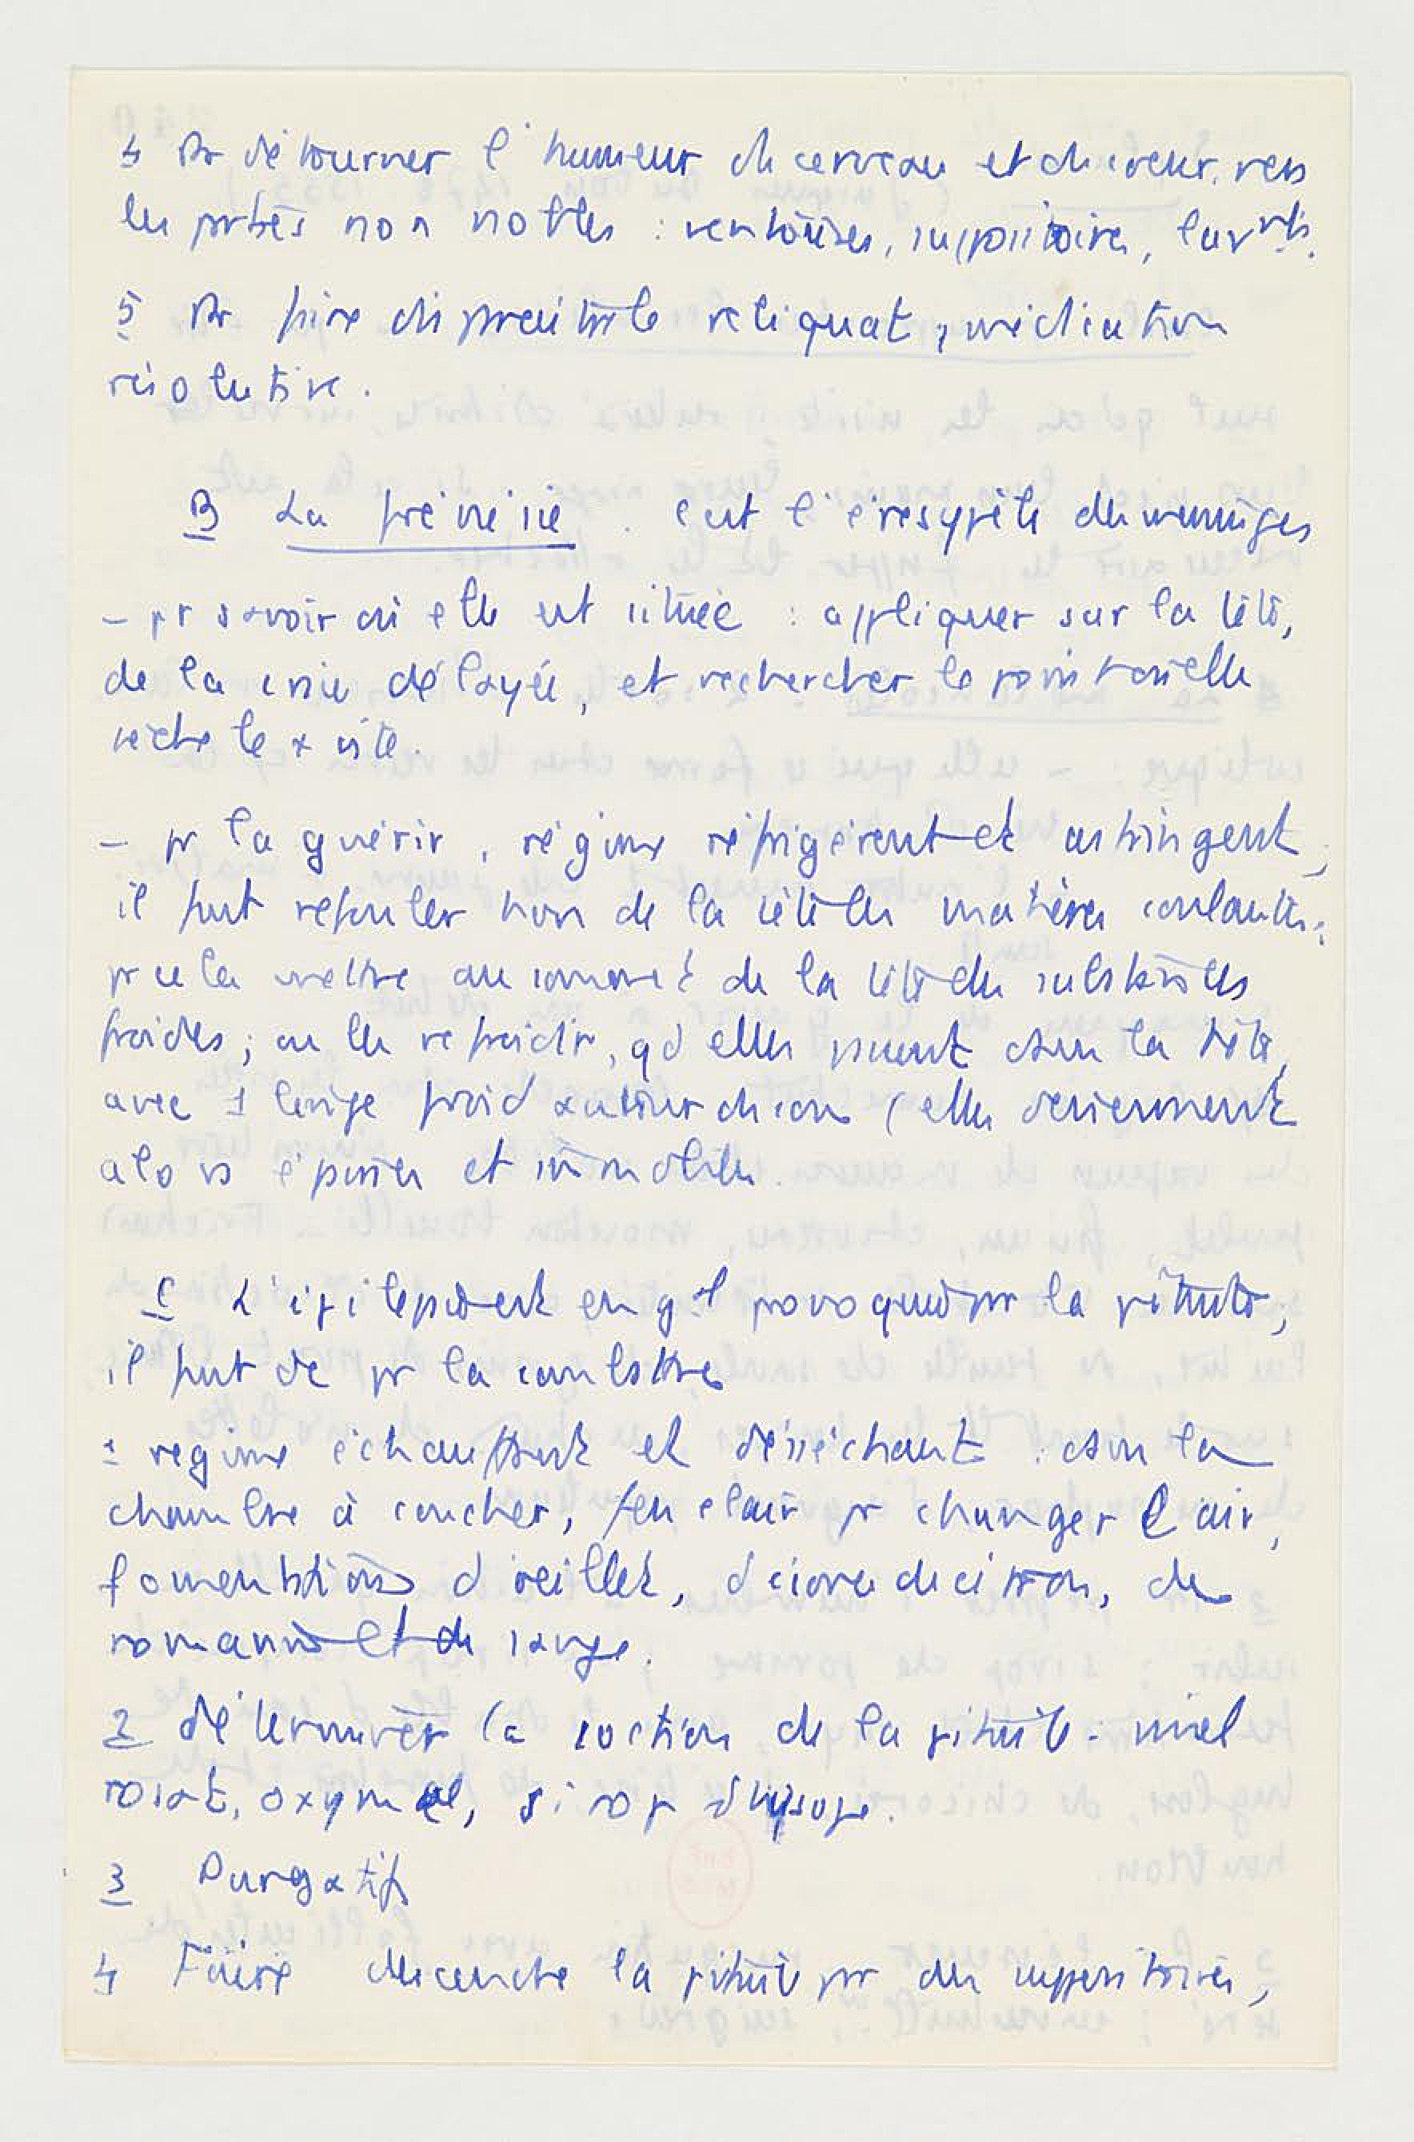 4 Pr détourner l'humeur du cerveau et du cœur, vers
les parties non nobles : ventouses, suppositoires, lavts.
5 Pr faire disparaître le reliquat, médication
résolutive.
B La frénésie. C'est l'érésypèle des méninges
- pr savoir où elle est située : appliquer sur la tête,
de la craie délayée, et rechercher le point où elle
sèche le + vite.
- pr la guérir, régime réfrigérent et astringent ;
il faut refouler hors de la tête les matières coulantes :
pr cela mettre au sommet de la tête des substances
froides ; ou les refroidir, qd elles passent dans la tête,
avec 1 linge froid autour du cou (elles deviennent
alors épaisses et immobiles.
C L'épilepsie est en gal provoquée par la pituite ;
il faut dc pr la combattre
1 régime échauffant et désséchant : dans la
chambre à coucher, feu clair pr changer l'air,
fomentations d'œillet, d'écorce de citron, de
romarin et de sauge.
2 Déterminer la coction de la pituite : miel
rosat, oxymel, sirop d'hysope.
3 Purgatifs
4 Faire descendre la pituite par des suppositoires,